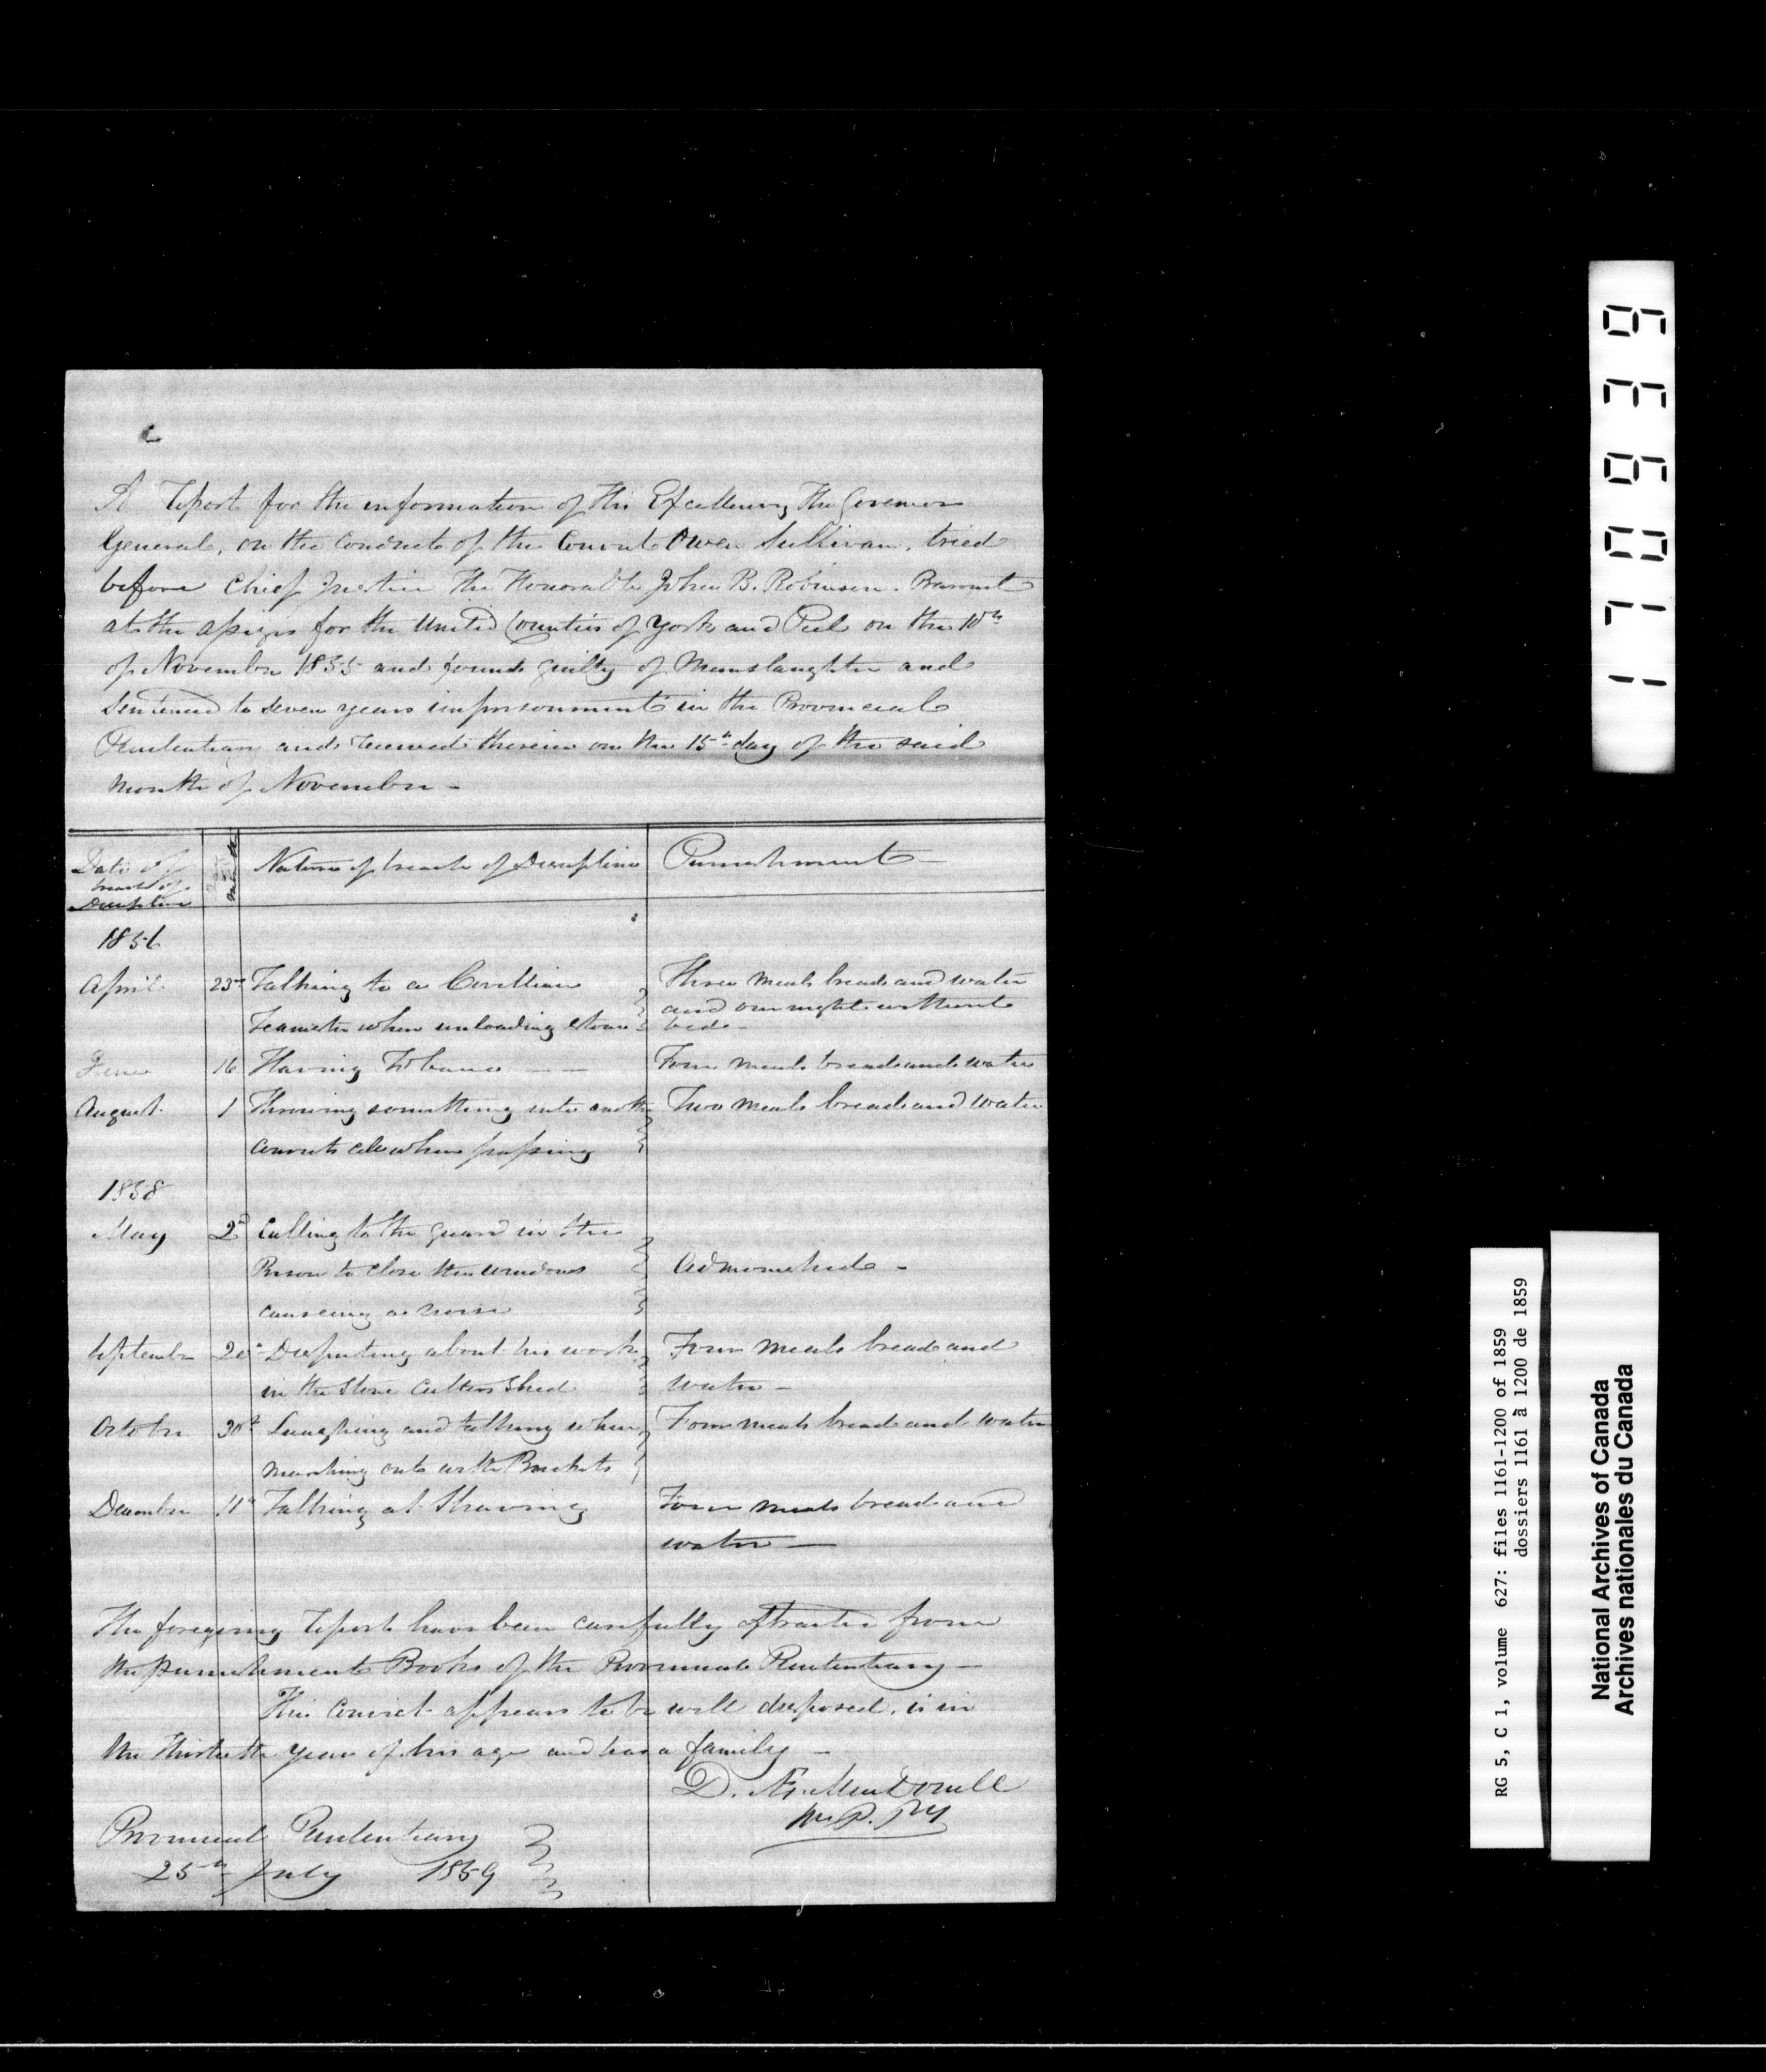 A Report for the information of His Excellency The Governor
General, on the Conduct of the Convict Owen Sullivan, tried
before Chief Justice The Honorable John B. Robinson. Baronet
at the Assizes for the United Counties of York and Peel on the 10th
of November 1855 and found guilty of Manslaughter and
Sentenced to seven years imprisonment in the Provincial
Penitentiary and received therein on the 15th day of the said
month of November -
Date of breach of Discipline
Nature of breach of Discipline
Punishment -
1856
April 23rd Talking to a Civillian Teamster when unloading stone
Three meals bread and water and one night without bed -
June 16 Having Tobacco - -
Four meals bread and water
August 1 Throwing something into another convicts cell when passing
Two meals bread and water
1858
May 2d Calling to the guard in the Prison to close the windows causeing a noise
Admonished -
September 20th Disputing about his work in the Stone Cutters Shed
Four meals bread and water -
October 30th Laughing and talking when marching out with Buckets
Four meals bread and water
December 11th Talking at Shaving
Four meals bread and water -
The foregoing Report have been carefully extracted from
the Punishment Books of the Provincial Penitentiary -
This convict appears to be well disposed, is in
the Thirtieth year of his age and has a family -
D. Æ. MacDonell
W. P. Py
Provincial Penitentiary
25th July 1859
171069 39
RG 5, C 1, volume 627: files 1161-1200 of 1859
dossiers 1161 à 1200 de 1859
National Archives of Canada
Archives nationales du Canada